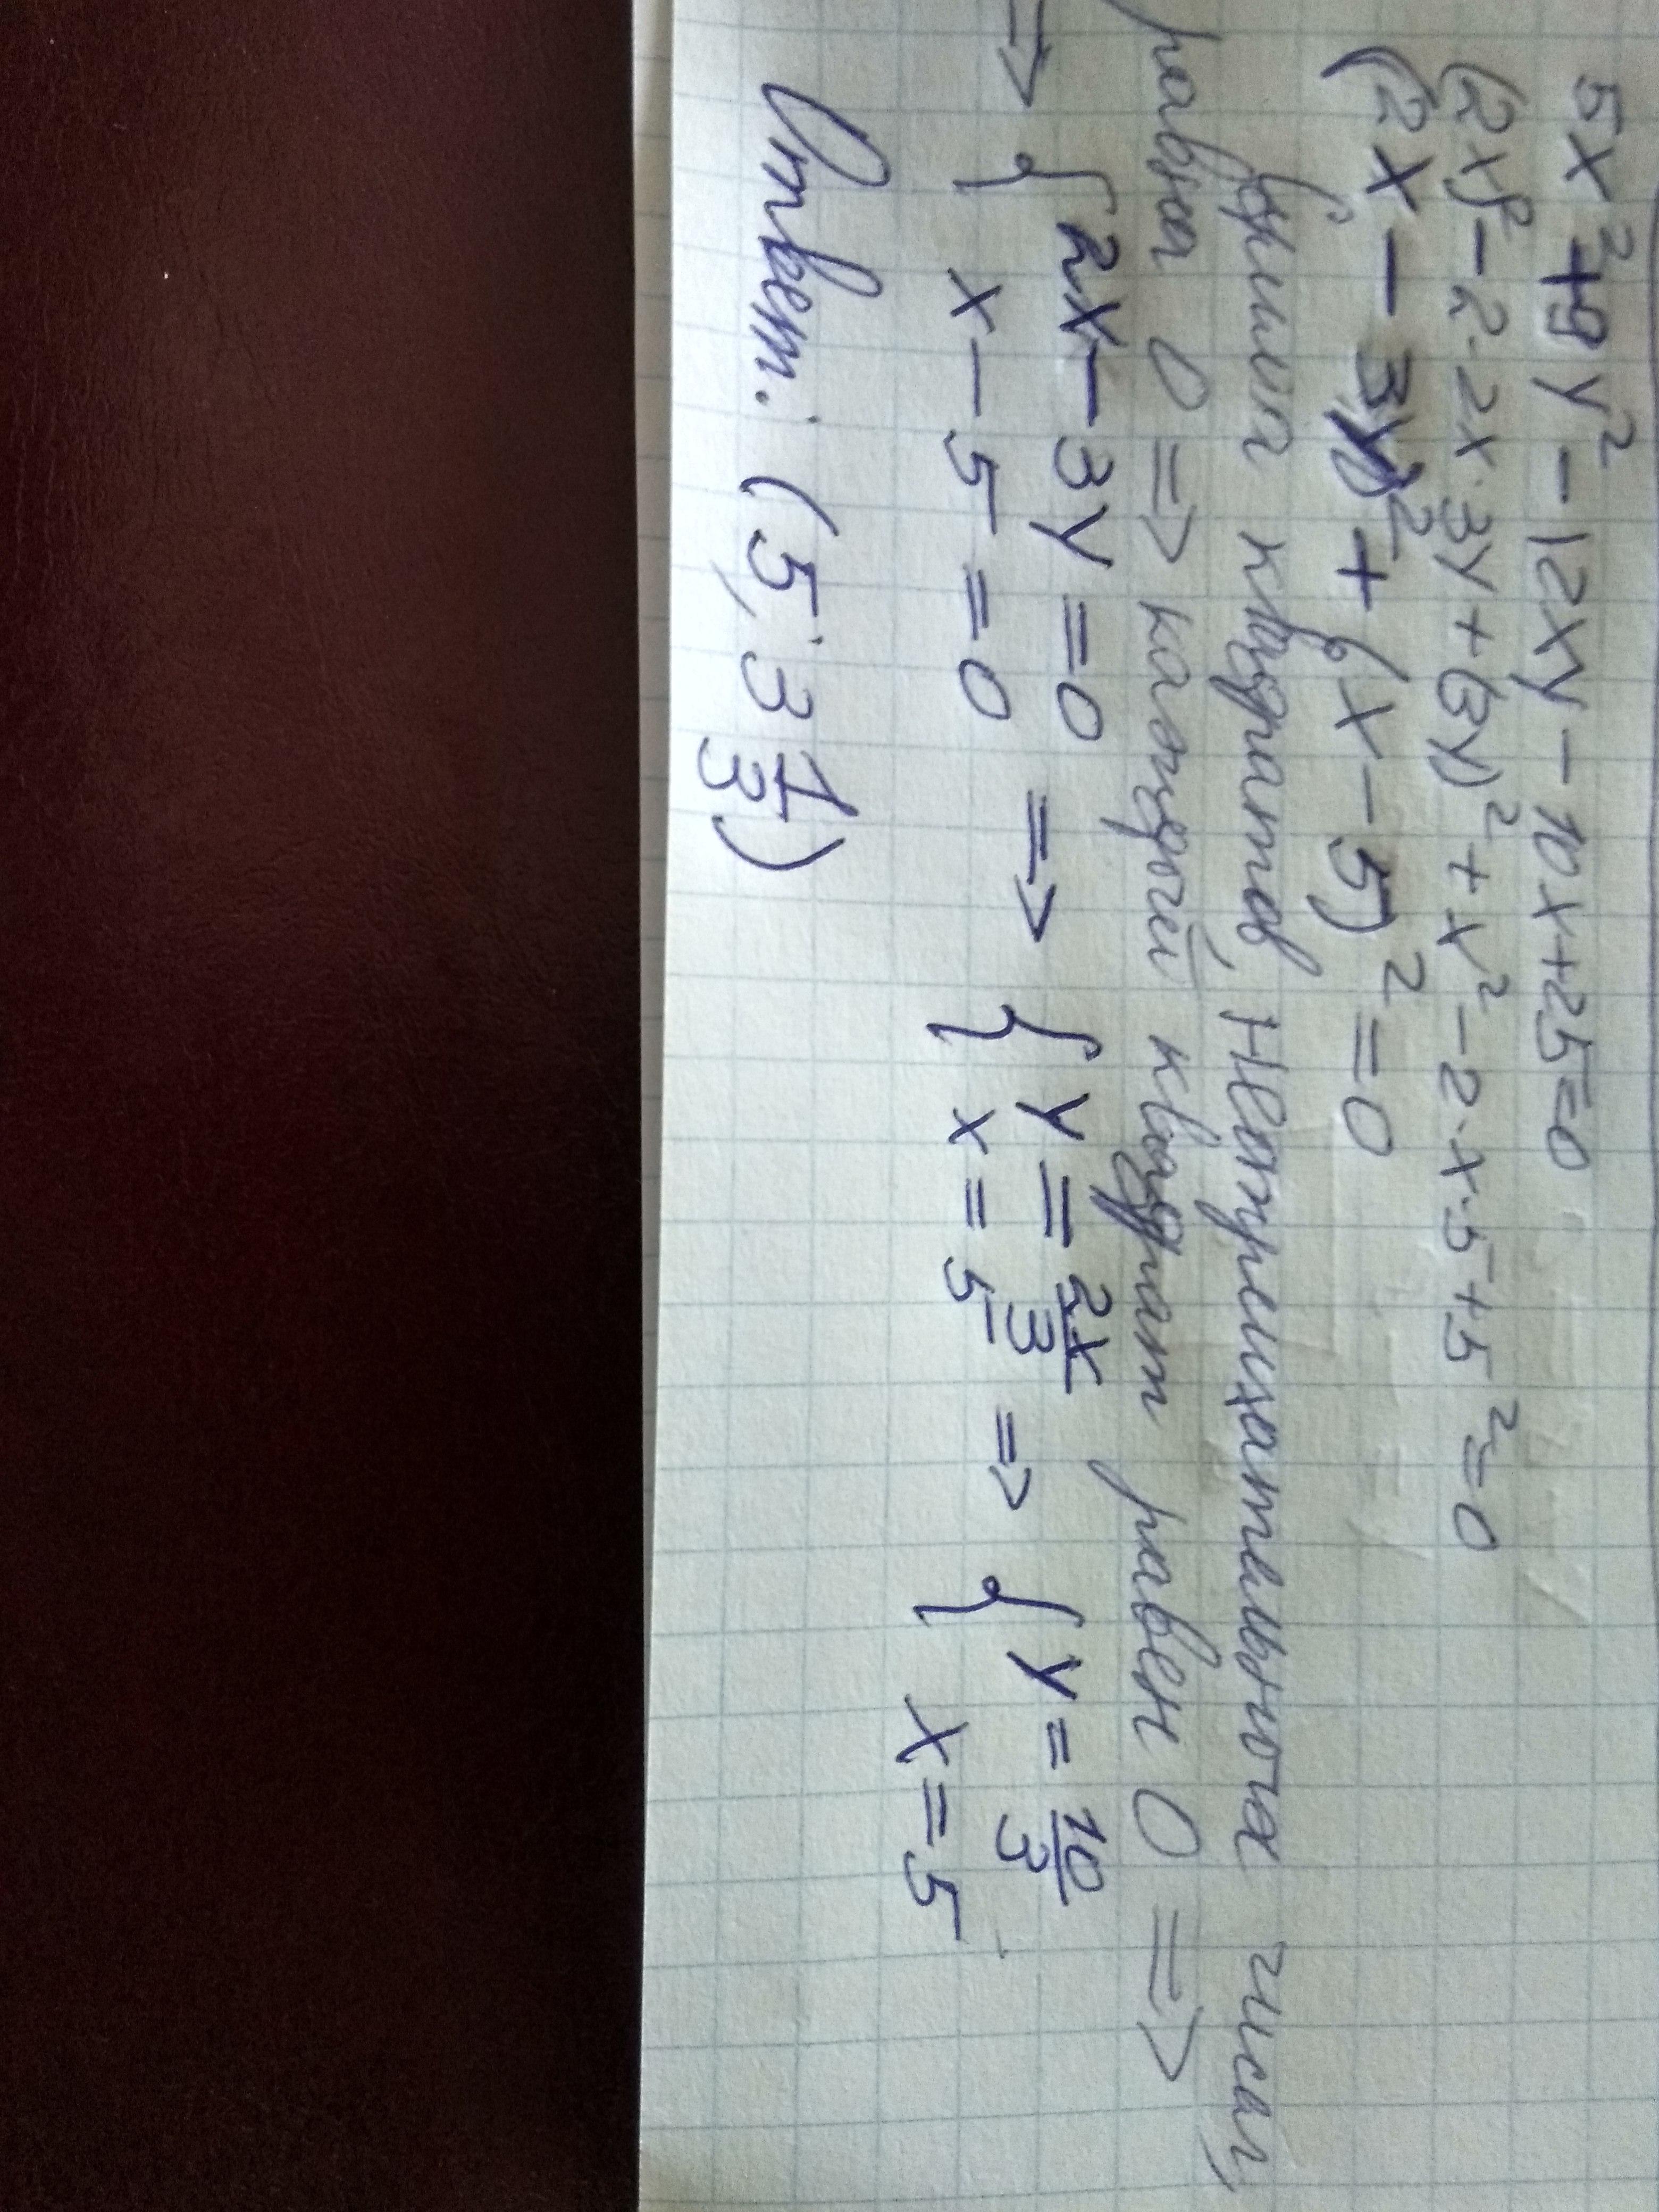 5x² + 9y² - 12xy - 10x + 25 = 0
(2x)² - 2·2x·3y + (3y)² + x² - 2·x·5 + 5² = 0
(2x - 3y)² + (x - 5)² = 0
Сумма квадратов, неотрицательных чисел,
равна 0 => каждый квадрат равен 0 =>
=> { 2x - 3y = 0 => { y = 2x/3 => { y = 10/3
x - 5 = 0 x = 5 x = 5
Ответ: (5; 3 1/3)